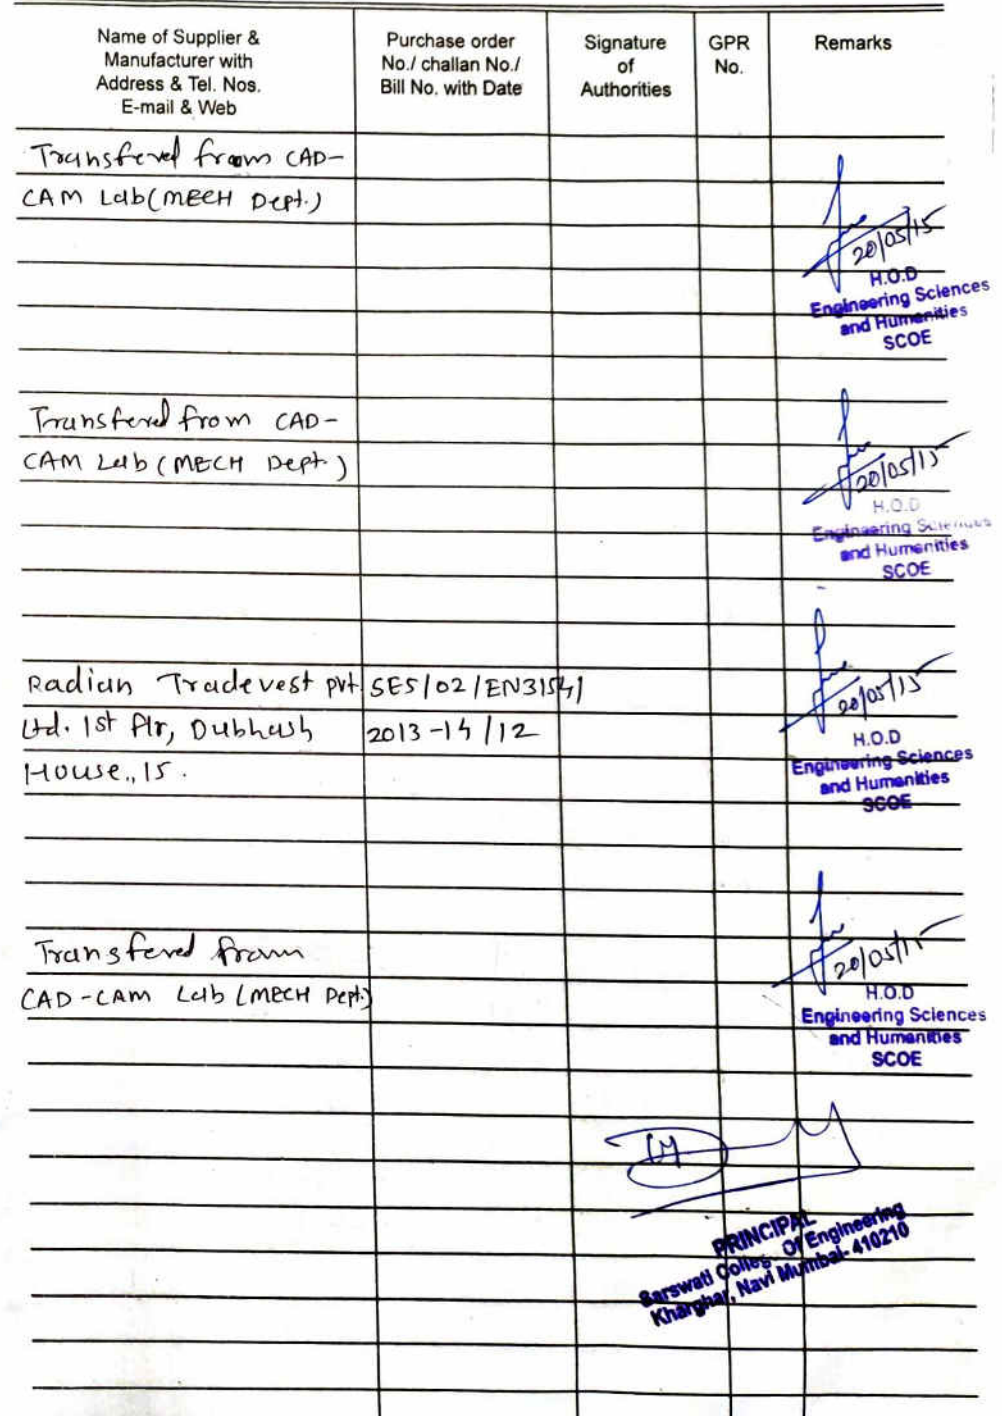 Name of Supplier &
Manufacturer with
Address & Tel. Nos.
E-mail & Web
Purchase order
No./ challan No./
Bill No. with Date
Signature
of
Authorities
GPR
No.
Remarks
Transfered from CAD-
CAM Lab (MECH Dept.)
20/05/15
H.O.D
Engineering Sciences
and Humanities
SCOE
Transfered from CAD-
CAM Lab (MECH Dept.)
20/05/15
H.O.D
Engineering Sciences
and Humanities
SCOE
Radian Tradevest pvt SES/02/EN3154/
Ltd. 1st Flr, Dubhash 2013-14/12
House., 15.
20/05/15
H.O.D
Engineering Sciences
and Humanities
SCOE
Transfered from
CAD-CAM Lab (MECH Dept.)
20/05/15
H.O.D
Engineering Sciences
and Humanities
SCOE
PRINCIPAL
Sarswati College Of Engineering
Kharghar, Navi Mumbai- 410210